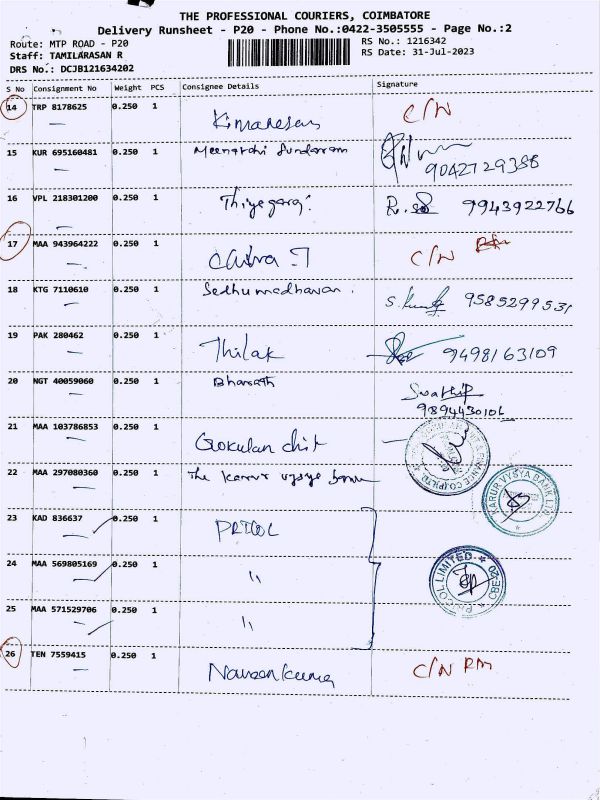 THE PROFESSIONAL COURIERS, COIMBATORE
Delivery Runsheet - P20 - Phone No.:0422-3505555 - Page No.:2
Route: MTP ROAD - P20 RS No.: 1216342
Staff: TAMILARASAN R RS Date: 31-Jul-2023
DRS No.: DCJB121634202
S No Consignment No Weight PCS Consignee Details Signature
14 TRP 8178625 0.250 1 C/N
15 KUR 695160481 0.250 1 Meenatchi Sundaram
9042729388
16 VPL 218301200 0.250 1 9943922766
17 MAA 943964222 0.250 1 Chitra T C/N
18 KTG 7110610 0.250 1 Sedhumadhavan. 9585299531
19 PAK 280462 0.250 1 Thilak 9498163109
20 NGT 40059060 0.250 1 Bharath
9894430106
21 MAA 103786853 0.250 1 Gokulan chit
22 MAA 297080360 0.250 1 The Karur vysya bank
KARUR VYSYA BANK LTD
23 KAD 836637 0.250 1 PRICOL
24 MAA 569805169 0.250 1 "
PRICOL LIMITED * CBE-20 *
25 MAA 571529706 0.250 1 "
26 TEN 7559415 0.250 1 Naveen Kumar C/N RM